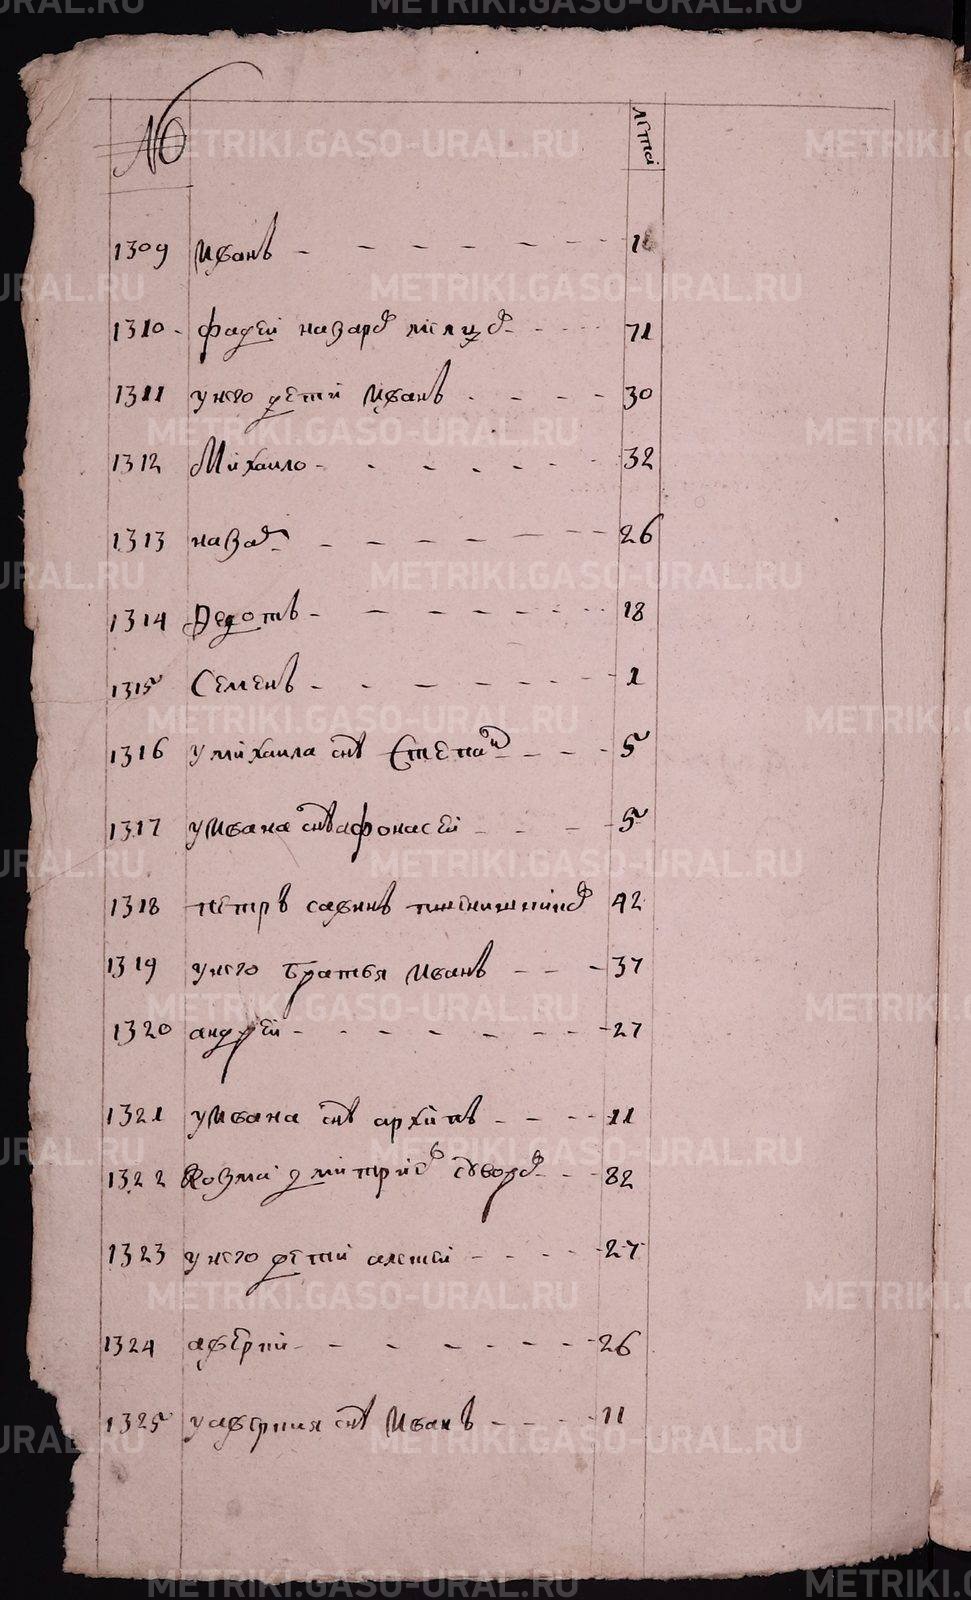 № лѣта
1309 Иванъ 18
1310 фадей назаров 71
1311 у него дети Иванъ 30
1312 Михаило 32
1313 назар 26
1314 Федотъ 18
1315 Семенъ 1
1316 у михаила снъ Степан 5
1317 у Ивана снъ афонасей 5
1318 петръ савинъ 42
1319 у него братья Иванъ 37
1320 андрей 27
1321 у Ивана снъ архипъ 11
1322 Козма дмитриев суворов 82
1323 у него дети алексей 27
1324 аверкий 26
1325 у аверкия снъ Иванъ 11
METRIKI.GASO-URAL.RU